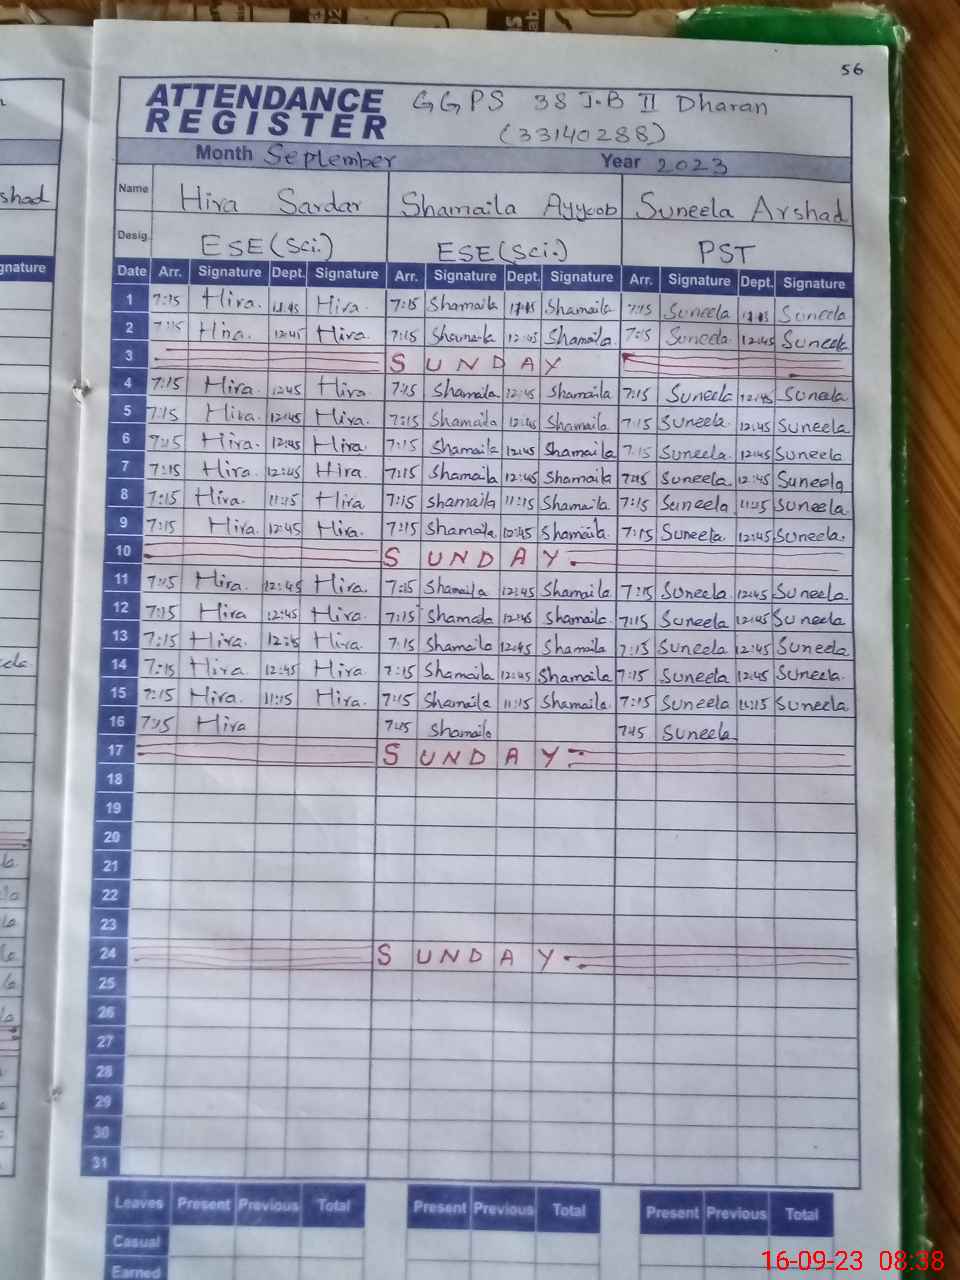 56
ATTENDANCE REGISTER
GGPS 38 J.B II Dharan
(33140288)
Month September Year 2023
shad
Name Hira Sardar Shamaila Ayyoob Suneela Arshad
Desig. ESE (Sci.) ESE (Sci.) PST
gnature
Date Arr. Signature Dept. Signature Arr. Signature Dept. Signature Arr. Signature Dept. Signature
1 7:15 Hira. 12:45 Hira. 7:15 Shamaila 12:45 Shamaila 7:15 Suneela 12:45 Suneela
2 7:15 Hira. 12:45 Hira. 7:15 Shamaila 12:45 Shamaila. 7:15 Suneela. 12:45 Suneela
3 SUNDAY
4 7:15 Hira. 12:45 Hira. 7:15 Shamaila 12:45 Shamaila 7:15 Suneela 12:45 Suneela
5 7:15 Hira. 12:45 Hira. 7:15 Shamaila 12:45 Shamaila 7:15 Suneela. 12:45 Suneela
6 7:15 Hira. 12:45 Hira. 7:15 Shamaila 12:45 Shamaila 7:15 Suneela. 12:45 Suneela
7 7:15 Hira. 12:45 Hira. 7:15 Shamaila 12:45 Shamaila 7:15 Suneela. 12:45 Suneela
8 7:15 Hira. 11:15 Hira 7:15 Shamaila 11:15 Shamaila. 7:15 Suneela 11:15 Suneela.
9 7:15 Hira. 12:45 Hira. 7:15 Shamaila. 12:45 Shamaila. 7:15 Suneela. 12:45 Suneela.
10 SUNDAY
11 7:15 Hira. 12:45 Hira. 7:15 Shamaila 12:45 Shamaila 7:15 Suneela. 12:45 Suneela.
12 7:15 Hira 12:45 Hira. 7:15 Shamaila 12:45 Shamaila. 7:15 Suneela 12:45 Suneela
13 7:15 Hira. 12:45 Hira. 7:15 Shamaila 12:45 Shamaila 7:15 Suneela 12:45 Suneela
14 7:15 Hira 12:45 Hira. 7:15 Shamaila 12:45 Shamaila 7:15 Suneela 12:45 Suneela.
15 7:15 Hira. 11:15 Hira. 7:15 Shamaila 11:15 Shamaila. 7:15 Suneela 11:15 Suneela.
16 7:45 Hira 7:45 Shamaila 7:45 Suneela.
17 SUNDAY
18
19
20
21
22
23
24 SUNDAY
25
26
27
28
29
30
31
Leaves Present Previous Total Present Previous Total Present Previous Total
Casual
Earned
16-09-23 08:38